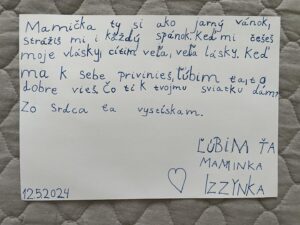 Mamička ty si ako jarný vánok,
strážiš mi i každý spánok. Keď mi češeš
moje vlásky, cítim veľa, veľa lásky. Keď
ma k sebe privinieš, ľúbim ťa, to
dobre vieš. Čo ti k tvojmu sviatku dám?
Zo srdca ťa vystískam.
ĽÚBIM ŤA
MAMINKA
IZZYNKA
12.5.2024